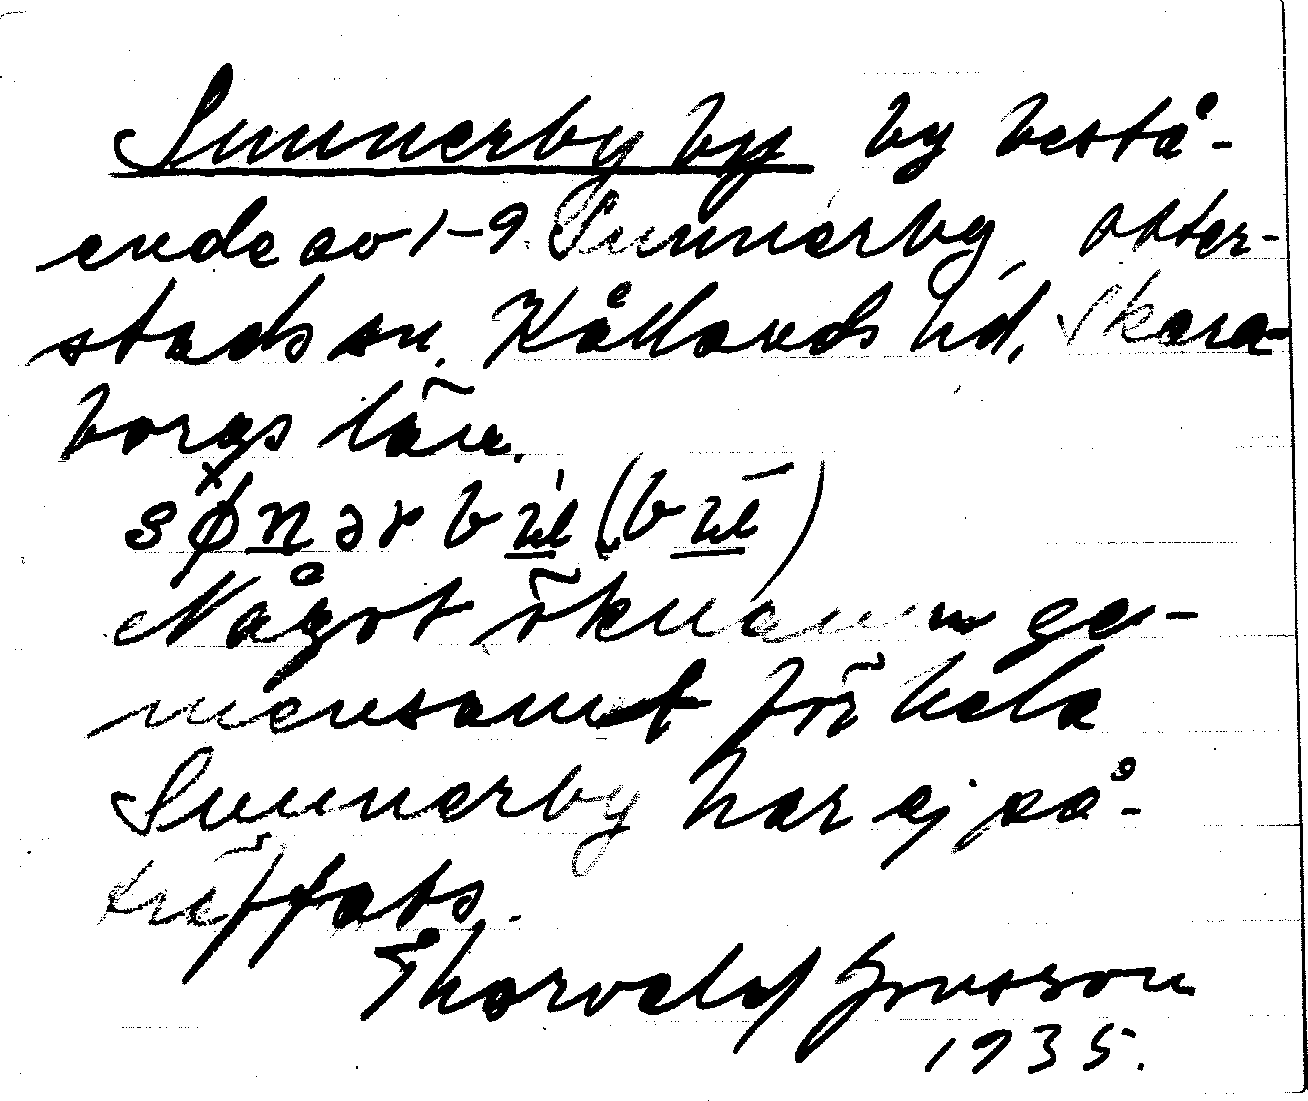 Sunnerby by by bestå-
ende av 1-9 Sunnerby, Otter-
stads sn. Kållands hd, Skara-
borgs län.
Något öknamn ge-
mensamt för hela
Sunnerby har ej på-
träffats.
Thorvald Jonsson
1935.